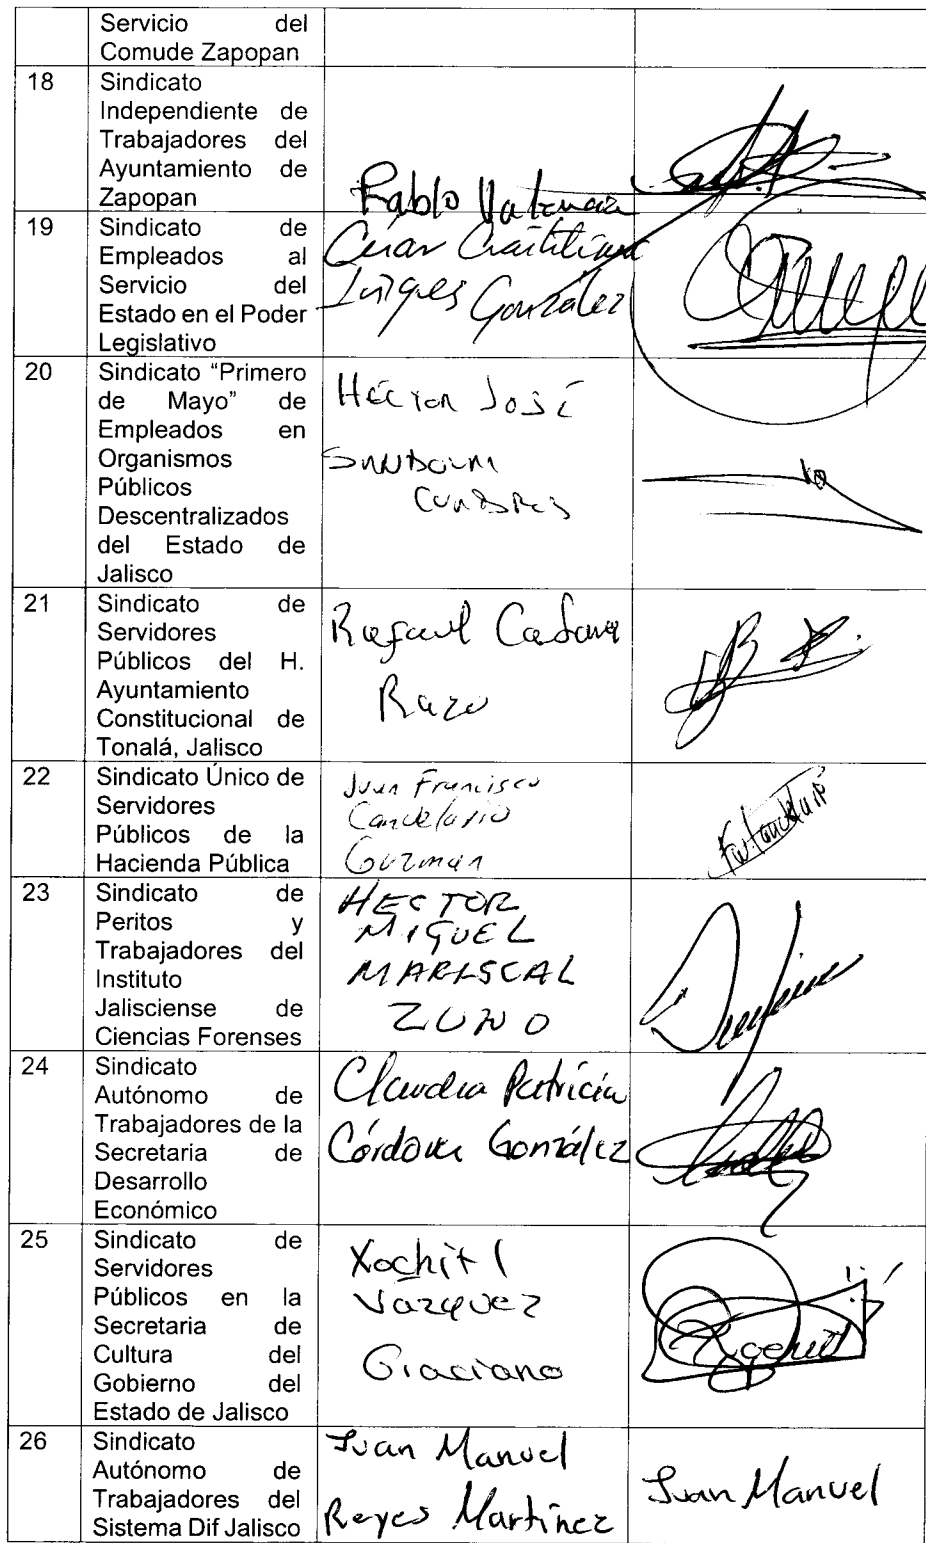 Servicio del
Comude Zapopan
18 Sindicato
Independiente de
Trabajadores del
Ayuntamiento de
Zapopan
Pablo
19 Sindicato de
Empleados al
Servicio del
Estado en el Poder
Legislativo
González
20 Sindicato “Primero
de Mayo” de
Empleados en
Organismos
Públicos
Descentralizados
del Estado de
Jalisco
Héctor José
21 Sindicato de
Servidores
Públicos del H.
Ayuntamiento
Constitucional de
Tonalá, Jalisco
Rafael
Razo
22 Sindicato Único de
Servidores
Públicos de la
Hacienda Pública
Juan Francisco
Candelario
Guzman
23 Sindicato de
Peritos y
Trabajadores del
Instituto
Jalisciense de
Ciencias Forenses
HECTOR
MIGUEL
MARISCAL
ZUNO
24 Sindicato
Autónomo de
Trabajadores de la
Secretaria de
Desarrollo
Económico
Claudia Patricia
Córdova González
25 Sindicato de
Servidores
Públicos en la
Secretaria de
Cultura del
Gobierno del
Estado de Jalisco
Xochitl
Vazquez
Graciano
26 Sindicato
Autónomo de
Trabajadores del
Sistema Dif Jalisco
Juan Manuel
Reyes Martínez
Juan Manuel